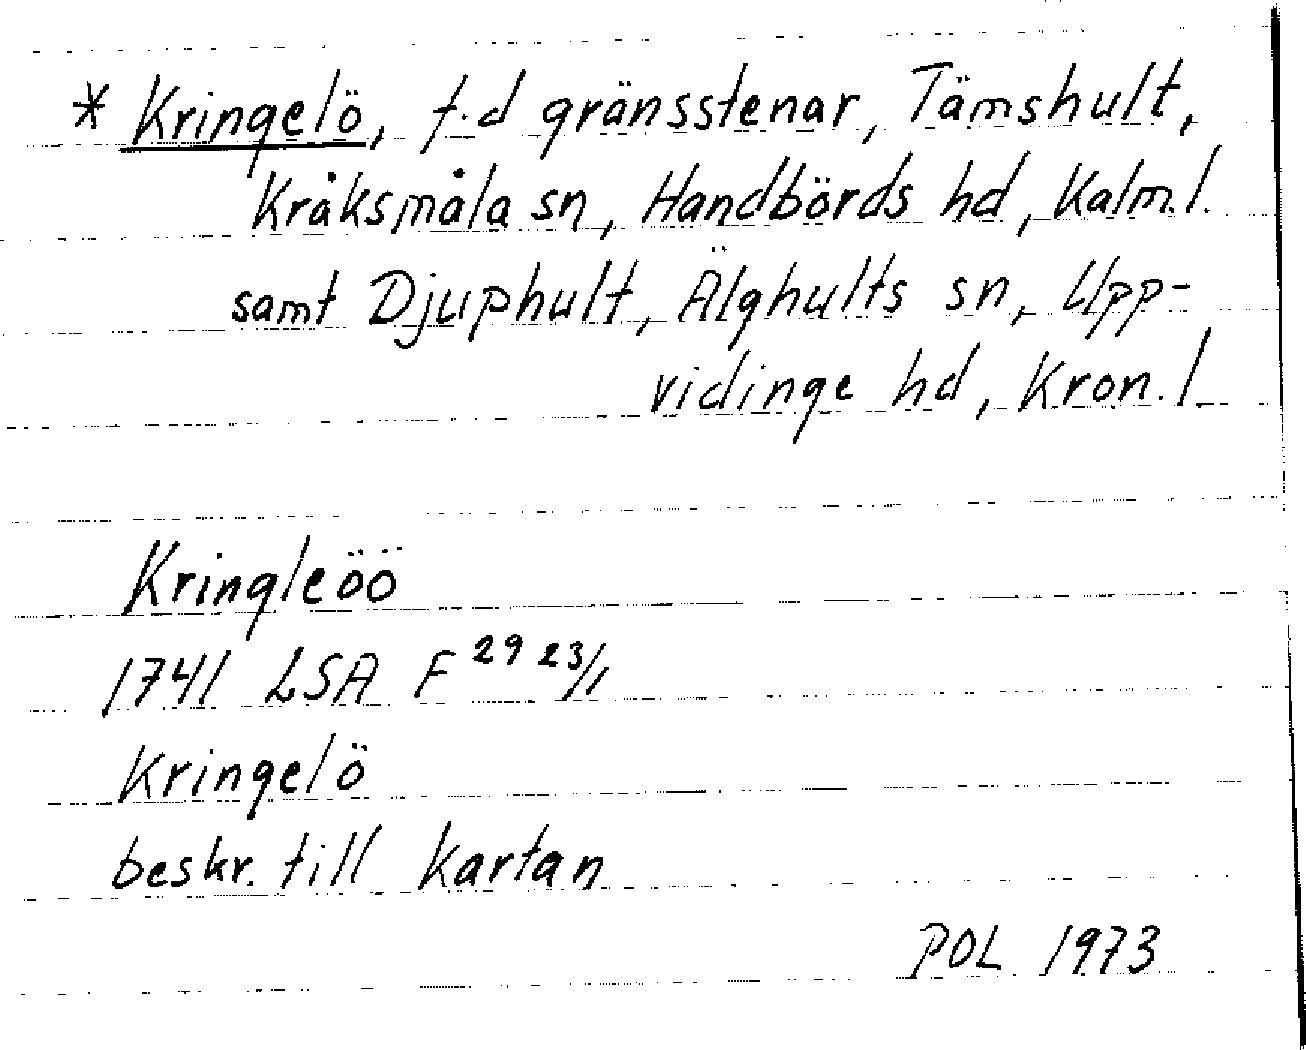 * Kringelö, f.d gränsstenar, Tämshult,
Kråksmåla sn, Handbörds hd, Kalm.l.
samt Djuphult, Älghults sn, Upp-
vidinge hd, Kron.l.
Kringleöö
1741 LSA F 29 23/1
Kringelö
beskr. till kartan
POL 1973